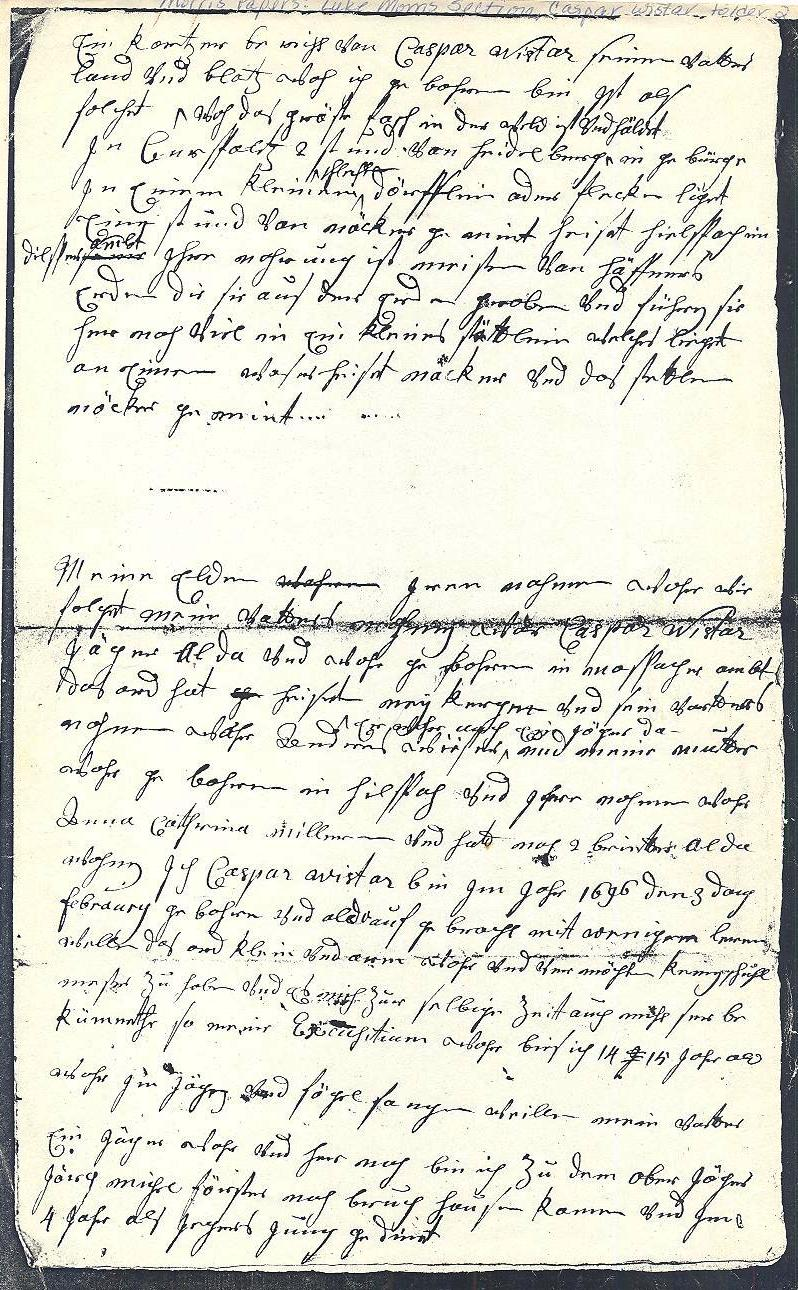 Morris Papers: Luke Morris Section, Caspar Wistar folder 2
Ein kortzer be richt Von Caspar Wistar seinem Vatter
land Und blatz woh ich ge bohren bin ist als
folcht woh das in der Weld ist Und
In Curpfaltz 2 stund Von heidelberge in ge bürge
In Einem kleinen schlechten dörfflein oder flecken liget
Eine stund Von näcker ge mint heiset hielspach im
dilsper ambt Ihre nahrung ist meisten Von häffners
Erden die sie aus der erden graben Und führen sie
her nach Viel in Ein kleines stättlein welches lieget
an Einem waser heiset näcker Und das stettlein
näcker ge mint
Meine Elden wahren Iren nahmen wahr wie
folget mein Vatters nahmen war Caspar Wistar
Jäger Alda Und wahr ge bohren in mospacher ambt
das ord hat heiset ney kergen Und sein Vatters
nahmen wahr Andreas Wieser Er wahr auch Ein jäger da Und meine mutter
wahr ge bohren in hilspach Und Ihre nahmen wahr
Anna Cathrina Müllerin Und hat noch 2 brieder Alda
wohnen Ich Caspar Wistar bin Im Jahr 1696 den 3 dag
februarÿ ge bohren Und alda auf ge bracht mit wenigem lernen
weillen das ord klein Und arm wahr Und Ver möchten keinen schuhl
meister Zu haben Und Es mich Zur selbige Zeit auch nicht ser be
kümerthe so meine Excersitium wahr bies ich 14 15 Jahr alt
wahr Im Jägen Und fögel fangen weillen mein Vatter
Ein Jäger wahr Und her nach bin ich Zu dem ober Jäger
Jörg michel förster nach bruch hausen kamen Und Ime
4 Jahr als Jegers Jung ge dient